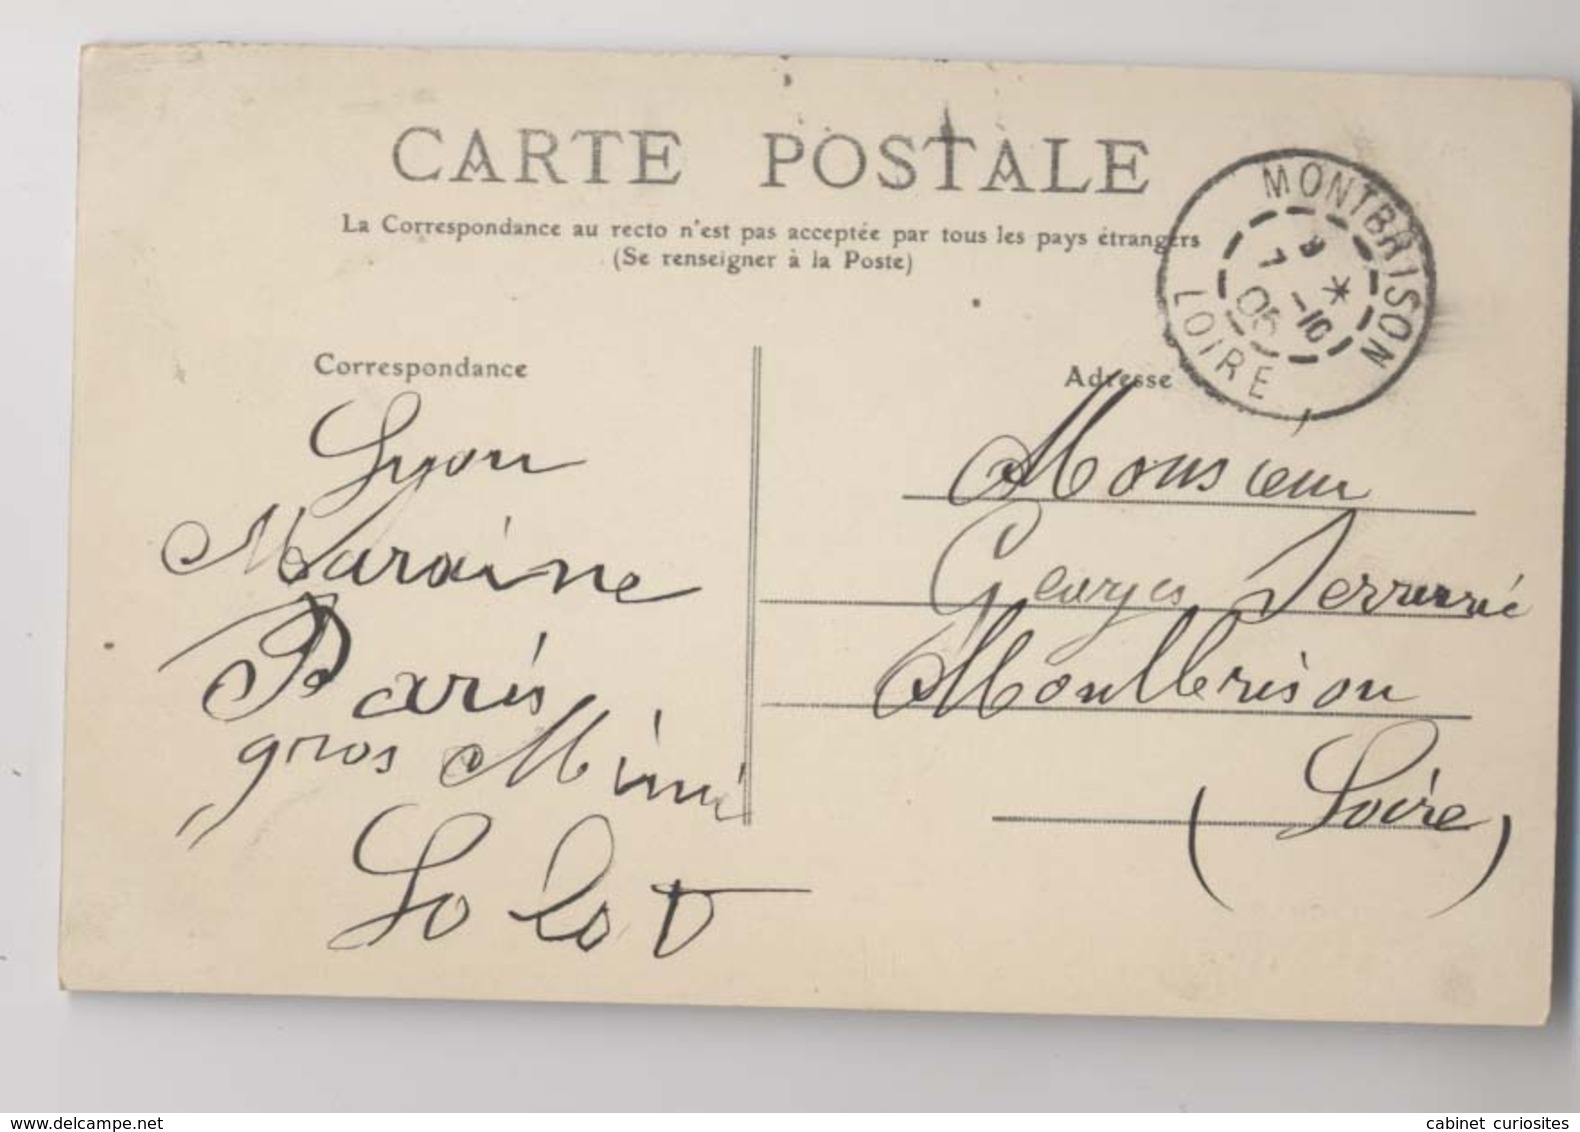 CARTE POSTALE
La Correspondance au recto n'est pas acceptée par tous les pays étrangers
(Se renseigner à la Poste)
MONTBRISON
9 *
7 -10
05
LOIRE
Correspondance
Lyon
Maraine
Paris
gros Mimi
Lolot
Adresse
Monsieur
Georges
Montbrison
(Loire)
www.delcampe.net
cabinet curiosites